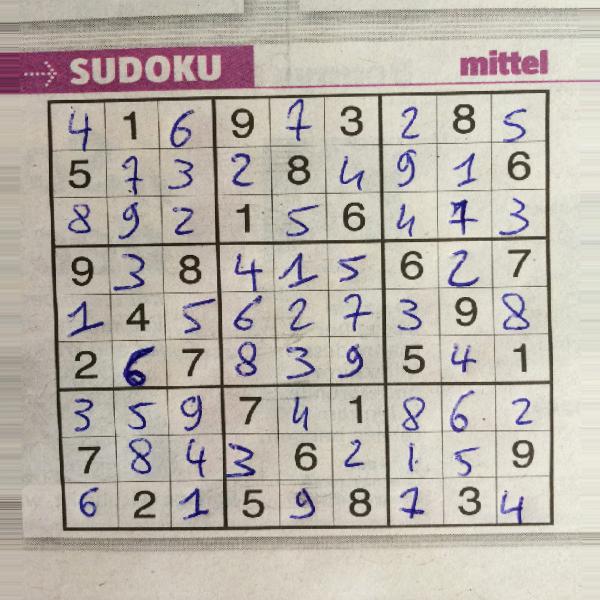 SUDOKU mittel
4 1 6 9 7 3 2 8 5
5 7 3 2 8 4 9 1 6
8 9 2 1 5 6 4 7 3
9 3 8 4 1 5 6 2 7
1 4 5 6 2 7 3 9 8
2 6 7 8 3 9 5 4 1
3 5 9 7 4 1 8 6 2
7 8 4 3 6 2 1 5 9
6 2 1 5 9 8 7 3 4